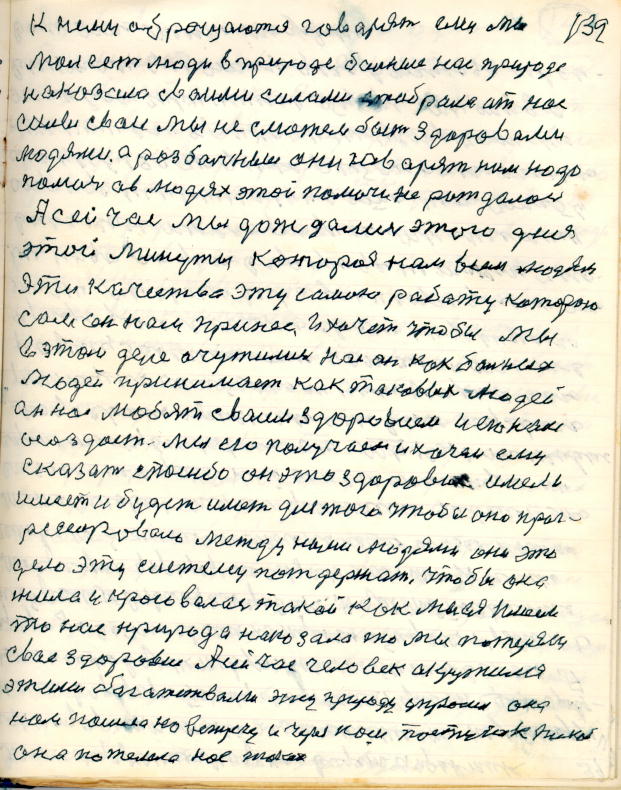 139
К нему обращаются говарят ему мы
мол есть люди в природе больные нас природе
наказала своими силами отобрала от нас
силы сваи мы не сможем быть здоровами
людями. а раз больные они говарят нам надо
помоч ов людях этой помочи не рождалося
А сей час мы дождалися этого дня
этой минуты которая нам всем людям
эти качества эту самою работу которою
сам он нам принес. И хочет чтобы мы
в этом деле очутилис нас он как больных
людей принимает как таковых людей
ан нас любят сваем здоровием и его нам
создает. мы его получаем и хочем ему
сказат спосибо он это здоровия имель
имеет и будет имет для того чтобы оно прог-
рессироваль между нами людями они это
дело эту систему потдержат. чтобы она
жила и красовалас такой как мы имели
то нас природа наказала то мы потеряли
свае здоровие А сей час человек окружился
этими багатствами эту природу упросил она
нам пошла на встречу и через наш поступок такой
она пожелела нас